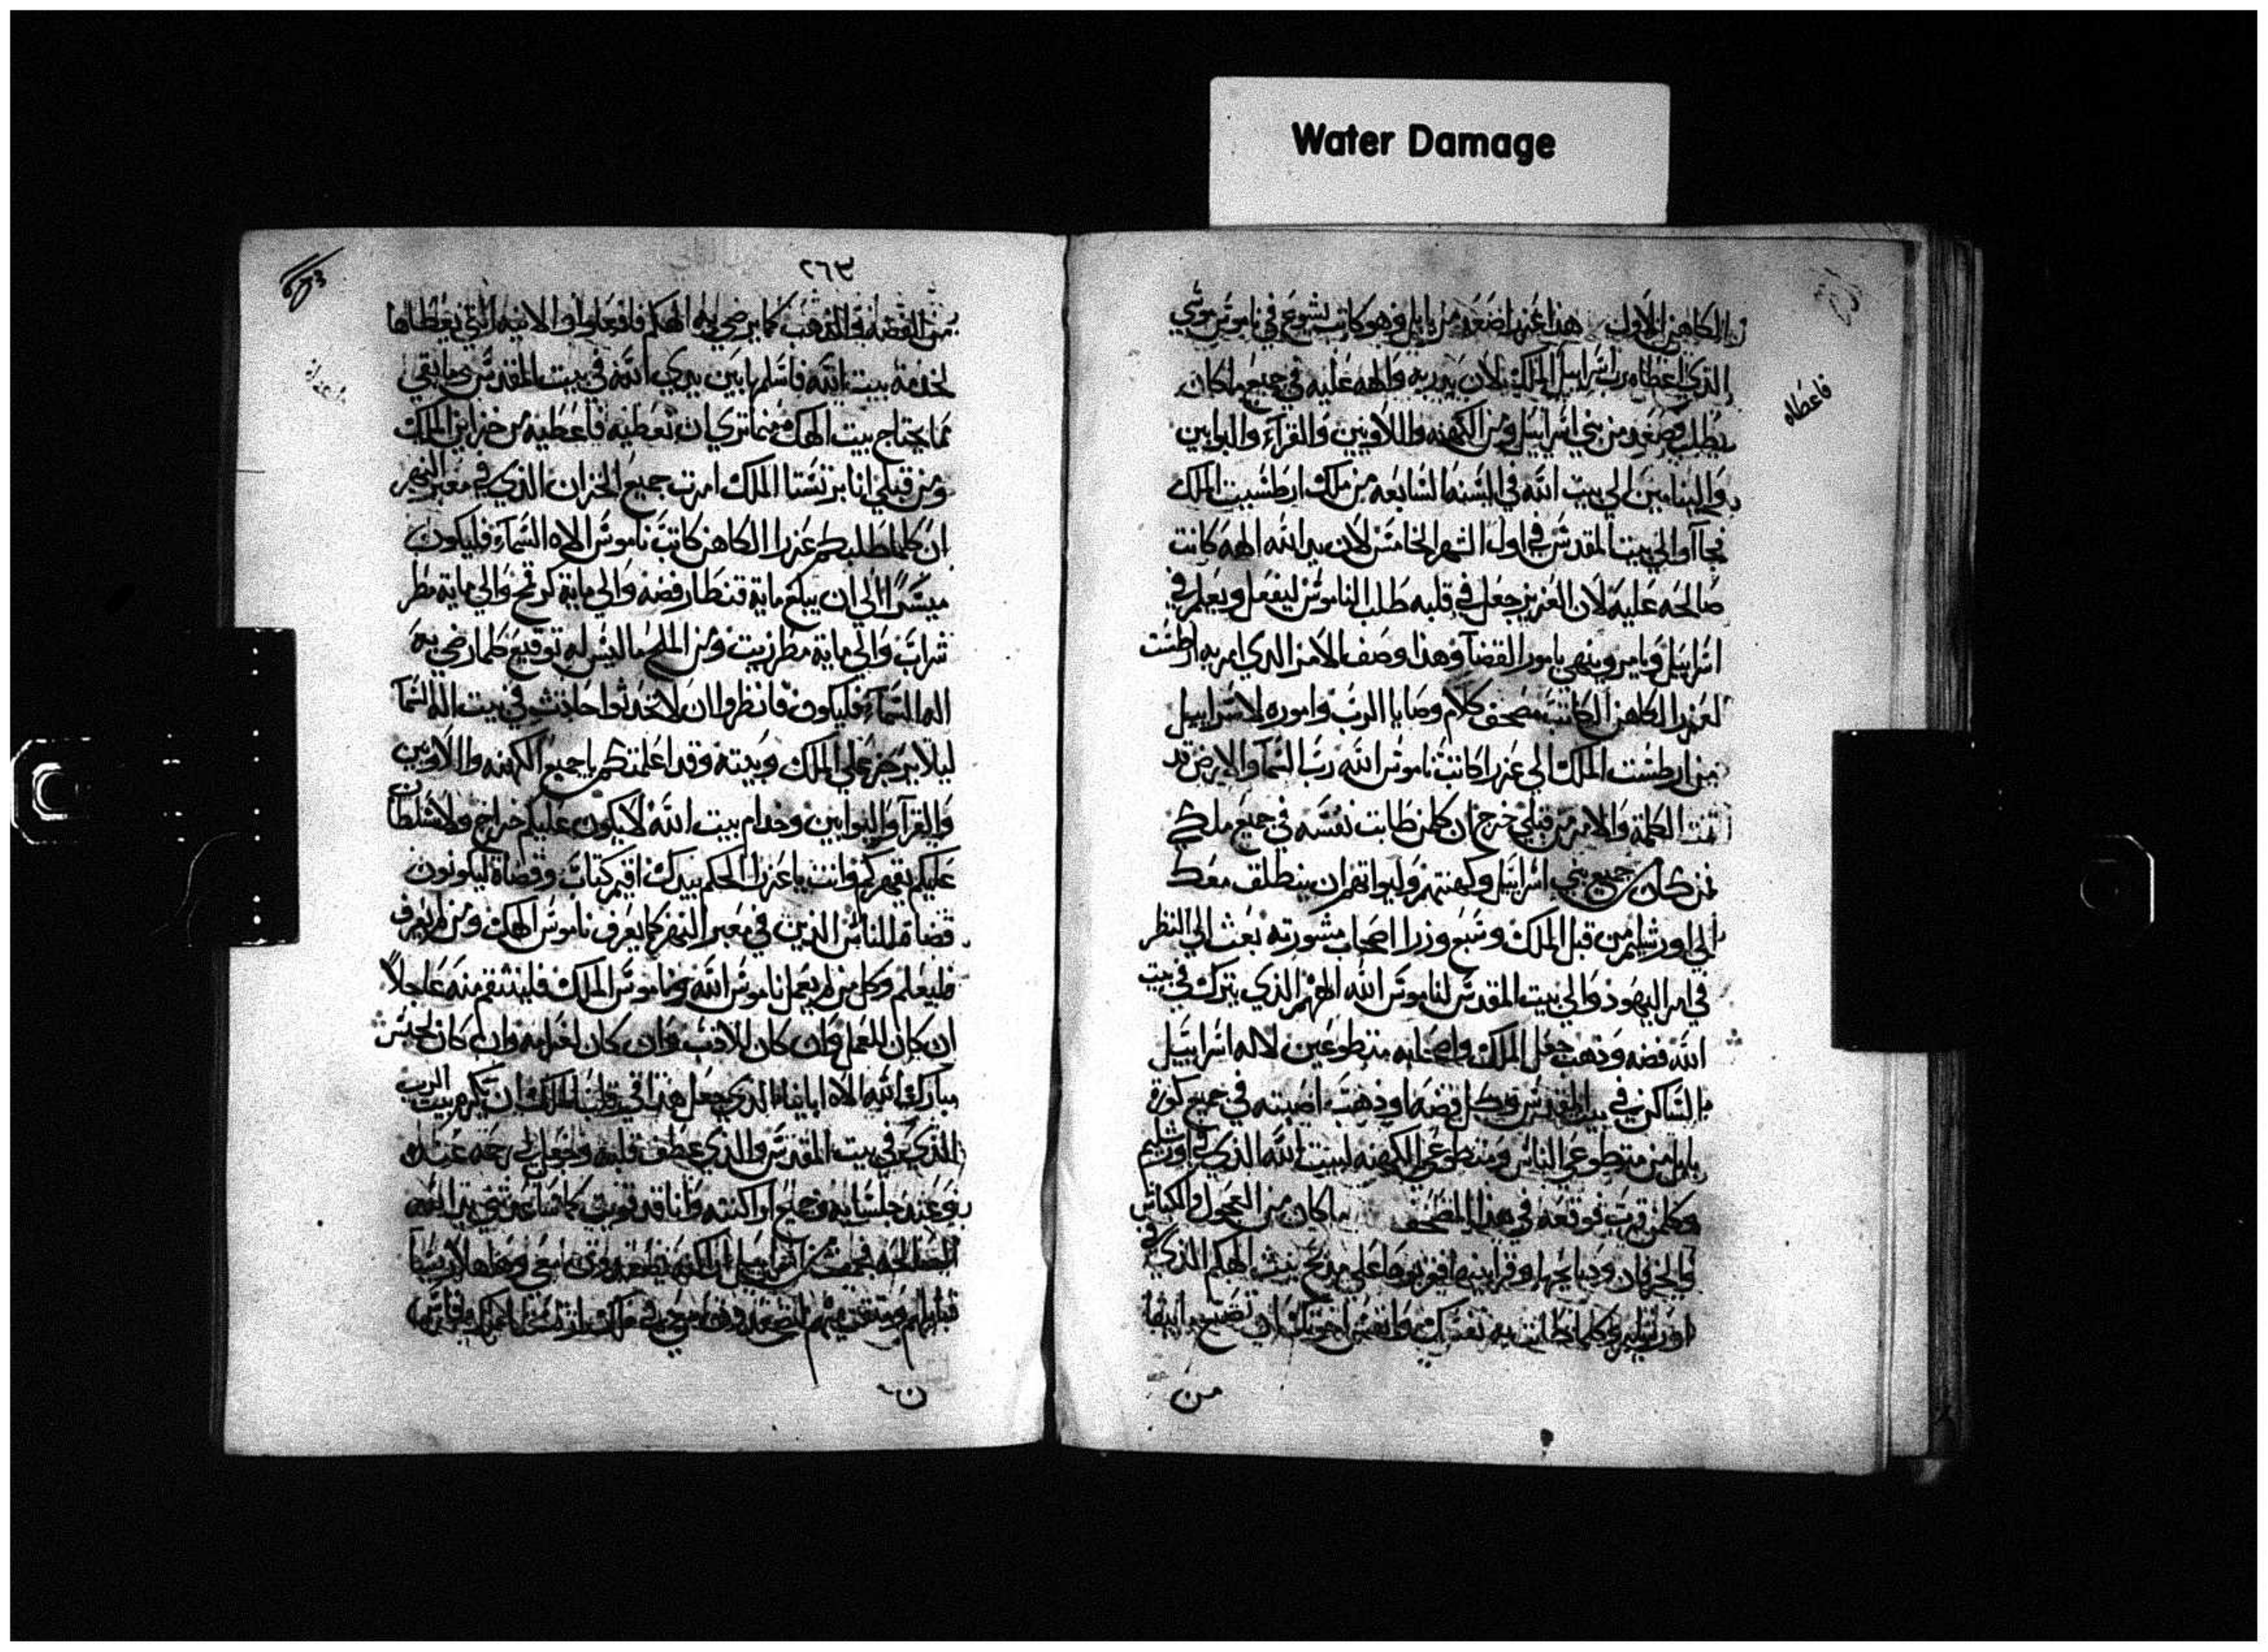 Water Damage
الكاهن الاول هذا عزرا صعد من بابل وهو كاتب يشوع في ناموس موسي
الذي اعطاه رب اسراييل الملك لان يد ربه والهه عليه في جميع ما كان
فاعطاه
يطلب فصعد من بني اسراييل ومن الكهنه واللاويين والقرآء والبوابين
والينامين الي بيت الله في السنه السابعه من ملك ارطشست الملك
فجاآوا الي بيت المقدس في اول الشهر الخامس لان يد الله الهه كانت
صالحه عليه لان العزيز جعل في قلبه طلب الناموس ليفعل ويعلم في
اسراييل ويامر وينهي بامور القضآ وهذا وصف الامر الدي امر به ارطشت
لعزرا الكاهن الكاتب مصحف كلام وصايا الرب واموره لاسراييل
من ارطشت الملك الي عزرا كاتب ناموس الله رب السما والارض قد
تمت الكلمة والامر من قبلي خرج ان كلمن طابت نفسه في جميع ملكي
من كان جميع بني اسراييل وكهنتهم وليواتهم ان ينطلق معك
الي اورشليم من قبل الملك وسبع وزرا اصحاب مشورته بعث الي النظر
في امر اليهود والي بيت المقدس لناموس الله الههم الذي يترك في بيت
الله فضه وذهب جعل الملك واصحابه متطوعين لاله اسراييل
الساكن في بيت المقدس وكل فضه او ذهب اصبته في جميع كورة
بابل من متطوعي الناس ومتطوعي الكهنه لبيت الله الذي في اورشليم
وكلمن قرب توقعه في هذا المصحف ما كان من العجول والكباش
والخرفان وذبايحها وقرابينها فقربوها علي مذبح بيت الهكم الذي في
اورشليم وكلما طابت به نفسك وانفس اخوتك ان تصنع بما ابقا
من
٢٦٣
من الفضه والذهب كما يرضي به الهكم فافعلوا والانيه التي يعطاها
لخدمة بيت الله فاسلمها بين يدي الله في بيت المقدس وما بقي
مما يحتاج بيت الهك مهما تري ان تعطيه فاعطيه من خزاين الملك
ومن قبلي انا برتشستا الملك امرت جميع الخزان الذي في معبر النهر
ان كلما طلبكم عزرا الكاهن كاتب ناموس الاه السماء فليكون
ميسرًا الي ان يبلغ ماية قنطار فضه والي ماية كر قمح والي ماية مطر
شراب والي ماية مطر زيت ومن الملح ما ليس له توقيع كلما رضي به
اله السماء فليكون فانظروا ان لا تحدثوا حادث في بيت اله السما
ليلا يرجز علي الملك وبيته وقد اعلمتكم يا جميع الكهنه واللاويين
والقرآ والبوابين وخدام بيت الله لا يكون عليكم خراج ولا سلطان
عليكم يقهركم وانت يا عزرا الحكم بيدك اقيم كتاب وقضاة ليكونون
قضاة للناس الذين في معبر النهر كما يعرف ناموس الهك ومن لم يعرف
فليعلم وكل من لم يعمل ناموس الله وناموس الملك فلينتقم منه عاجلاً
ان كان للعمل وان كان للادب وان كان لغرامه وان كان لحبس
مبارك الله الاه اباينا الذي جعل هذا في قلب الملك ان يكرم بيت الرب
الذي في بيت المقدس والذي عطف قلبه وجعل لي رحمه عنده
وعند جلسايه وجميع اراكنته وانا قد قويت كما شاعرتني يد الله
الصالحه فجمعت من اسراييل اراكنه يصعدون معي
ن